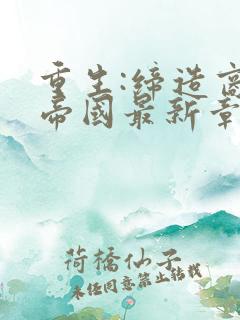 重生:締造商
帝國最新章
荷橋仙子
未经同意禁止转载